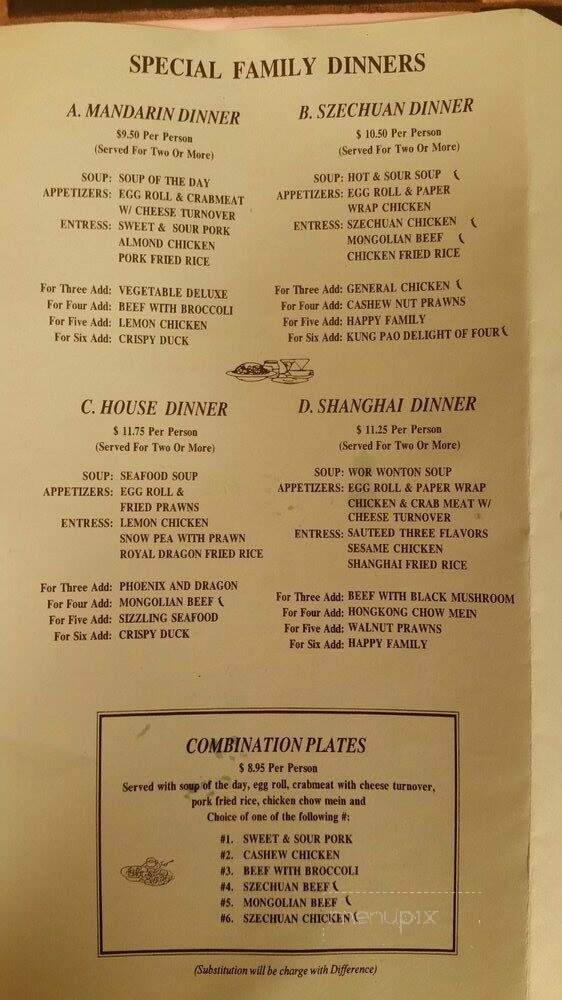 SPECIAL FAMILY DINNERS
A. MANDARIN DINNER
$9.50 Per Person
(Served For Two Or More)
SOUP: SOUP OF THE DAY
APPETIZERS: EGG ROLL & CRABMEAT
W/ CHEESE TURNOVER
ENTRESS: SWEET & SOUR PORK
ALMOND CHICKEN
PORK FRIED RICE
For Three Add: VEGETABLE DELUXE
For Four Add: BEEF WITH BROCCOLI
For Five Add: LEMON CHICKEN
For Six Add: CRISPY DUCK
B. SZECHUAN DINNER
$ 10.50 Per Person
(Served For Two Or More)
SOUP: HOT & SOUR SOUP
APPETIZERS: EGG ROLL & PAPER
WRAP CHICKEN
ENTRESS: SZECHUAN CHICKEN
MONGOLIAN BEEF
CHICKEN FRIED RICE
For Three Add: GENERAL CHICKEN
For Four Add: CASHEW NUT PRAWNS
For Five Add: HAPPY FAMILY
For Six Add: KUNG PAO DELIGHT OF FOUR
C. HOUSE DINNER
$ 11.75 Per Person
(Served For Two Or More)
SOUP: SEAFOOD SOUP
APPETIZERS: EGG ROLL &
FRIED PRAWNS
ENTRESS: LEMON CHICKEN
SNOW PEA WITH PRAWN
ROYAL DRAGON FRIED RICE
For Three Add: PHOENIX AND DRAGON
For Four Add: MONGOLIAN BEEF
For Five Add: SIZZLING SEAFOOD
For Six Add: CRISPY DUCK
D. SHANGHAI DINNER
$ 11.25 Per Person
(Served For Two Or More)
SOUP: WOR WONTON SOUP
APPETIZERS: EGG ROLL & PAPER WRAP
CHICKEN & CRAB MEAT W/
CHEESE TURNOVER
ENTRESS: SAUTEED THREE FLAVORS
SESAME CHICKEN
SHANGHAI FRIED RICE
For Three Add: BEEF WITH BLACK MUSHROOM
For Four Add: HONGKONG CHOW MEIN
For Five Add: WALNUT PRAWNS
For Six Add: HAPPY FAMILY
COMBINATION PLATES
$ 8.95 Per Person
Served with soup of the day, egg roll, crabmeat with cheese turnover,
pork fried rice, chicken chow mein and
Choice of one of the following #:
#1. SWEET & SOUR PORK
#2. CASHEW CHICKEN
#3. BEEF WITH BROCCOLI
#4. SZECHUAN BEEF
#5. MONGOLIAN BEEF
#6. SZECHUAN CHICKEN
menupix
(Substitution will be charge with Difference)